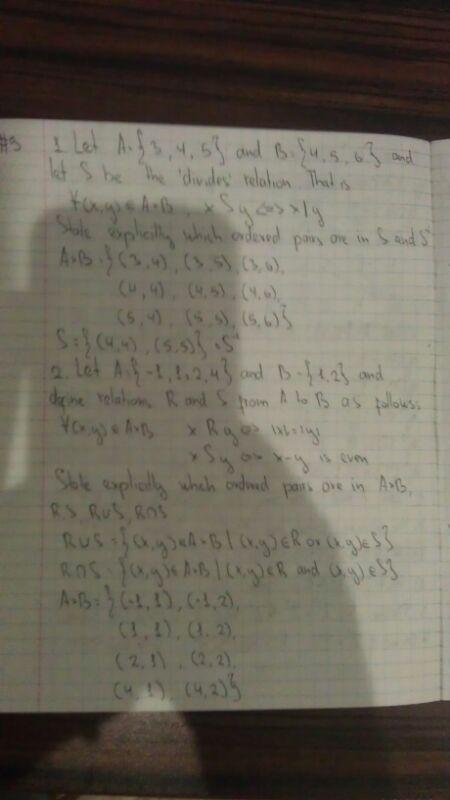 #3
1. Let A={3, 4, 5} and B={4, 5, 6} and
let S be the 'divides' relation. That is
∀(x,y)∈A×B, x S y <=> x|y
State explicitly which ordered pairs are in S and S⁻¹
A×B={(3,4), (3,5), (3,6),
(4,4), (4,5), (4,6),
(5,4), (5,5), (5,6)}
S={(4,4), (5,5)} =S⁻¹
2. Let A={-1, 1, 2, 4} and B={1, 2} and
define relations R and S from A to B as follows:
∀(x,y)∈A×B x R y <=> |x|=|y|
x S y <=> x-y is even
State explicitly which ordered pairs are in A×B,
R, S, R∪S, R∩S
R∪S={(x,y)∈A×B | (x,y)∈R or (x,y)∈S}
R∩S={(x,y)∈A×B | (x,y)∈R and (x,y)∈S}
A×B={(-1,1), (-1,2),
(1,1), (1,2),
(2,1), (2,2),
(4,1), (4,2)}